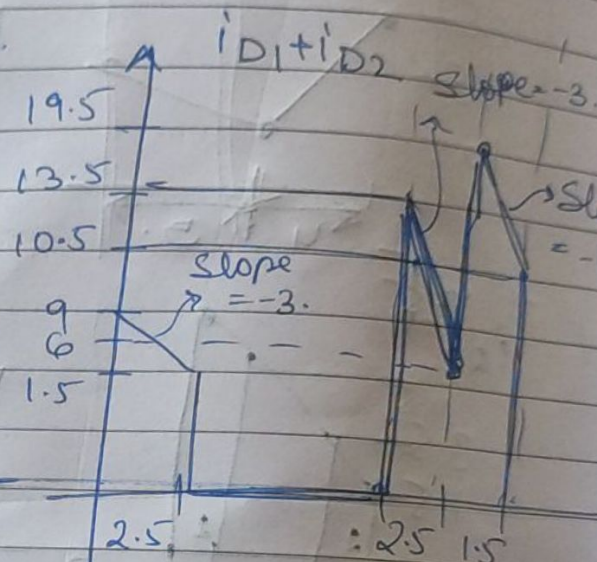 iD1+iD2
19.5
slope=-3.
13.5
10.5
slope
=-3.
Sl
= -
9
6
1.5
2.5
2.5
1.5